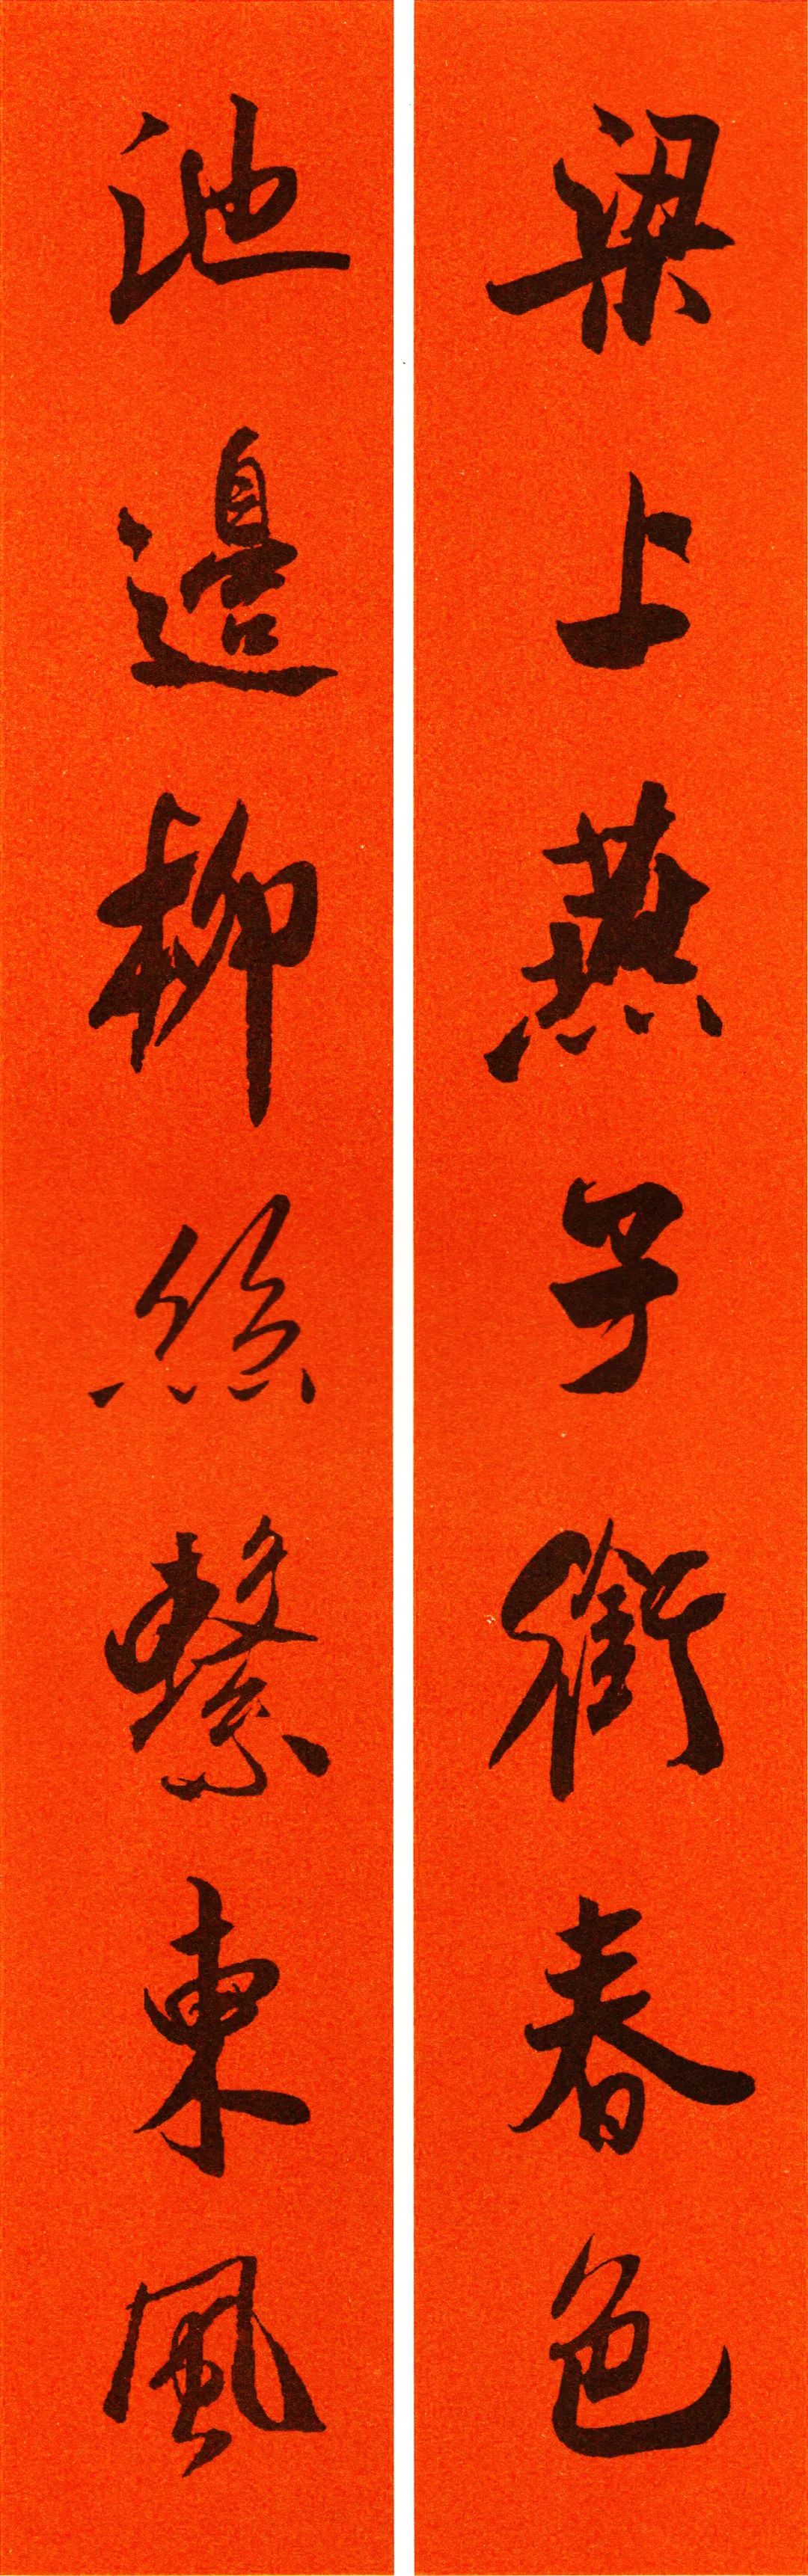 梁上燕子銜春色
池邊柳絲繫東風